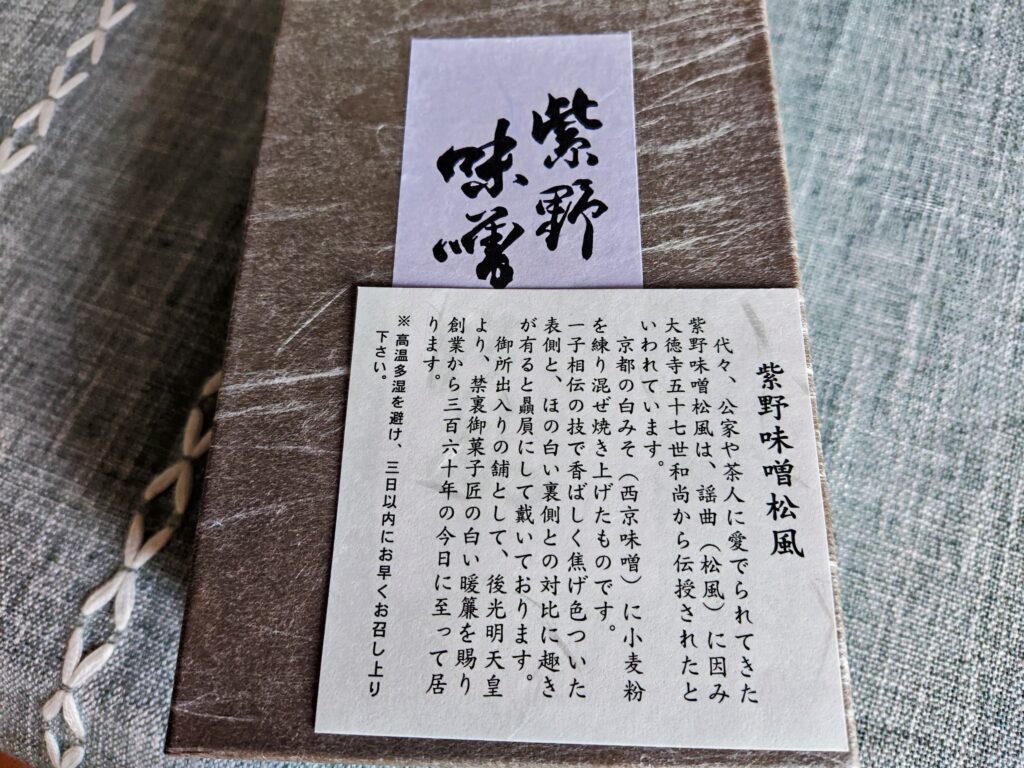 紫野
味噌
紫野味噌松風
代々、公家や茶人に愛でられてきた
紫野味噌松風は、謡曲（松風）に因み
大徳寺五十七世和尚から伝授されたと
いわれています。
京都の白みそ（西京味噌）に小麦粉
を練り混ぜ焼き上げたものです。
一子相伝の技で香ばしく焦げ色ついた
表側と、ほの白い裏側との対比に趣き
が有ると贔屓にして戴いております。
御所出入りの舗として、後光明天皇
より、禁裏御菓子匠の白い暖簾を賜り
創業から三百六十年の今日に至って居
ります。
※高温多湿を避け、三日以内にお早くお召し上り
下さい。